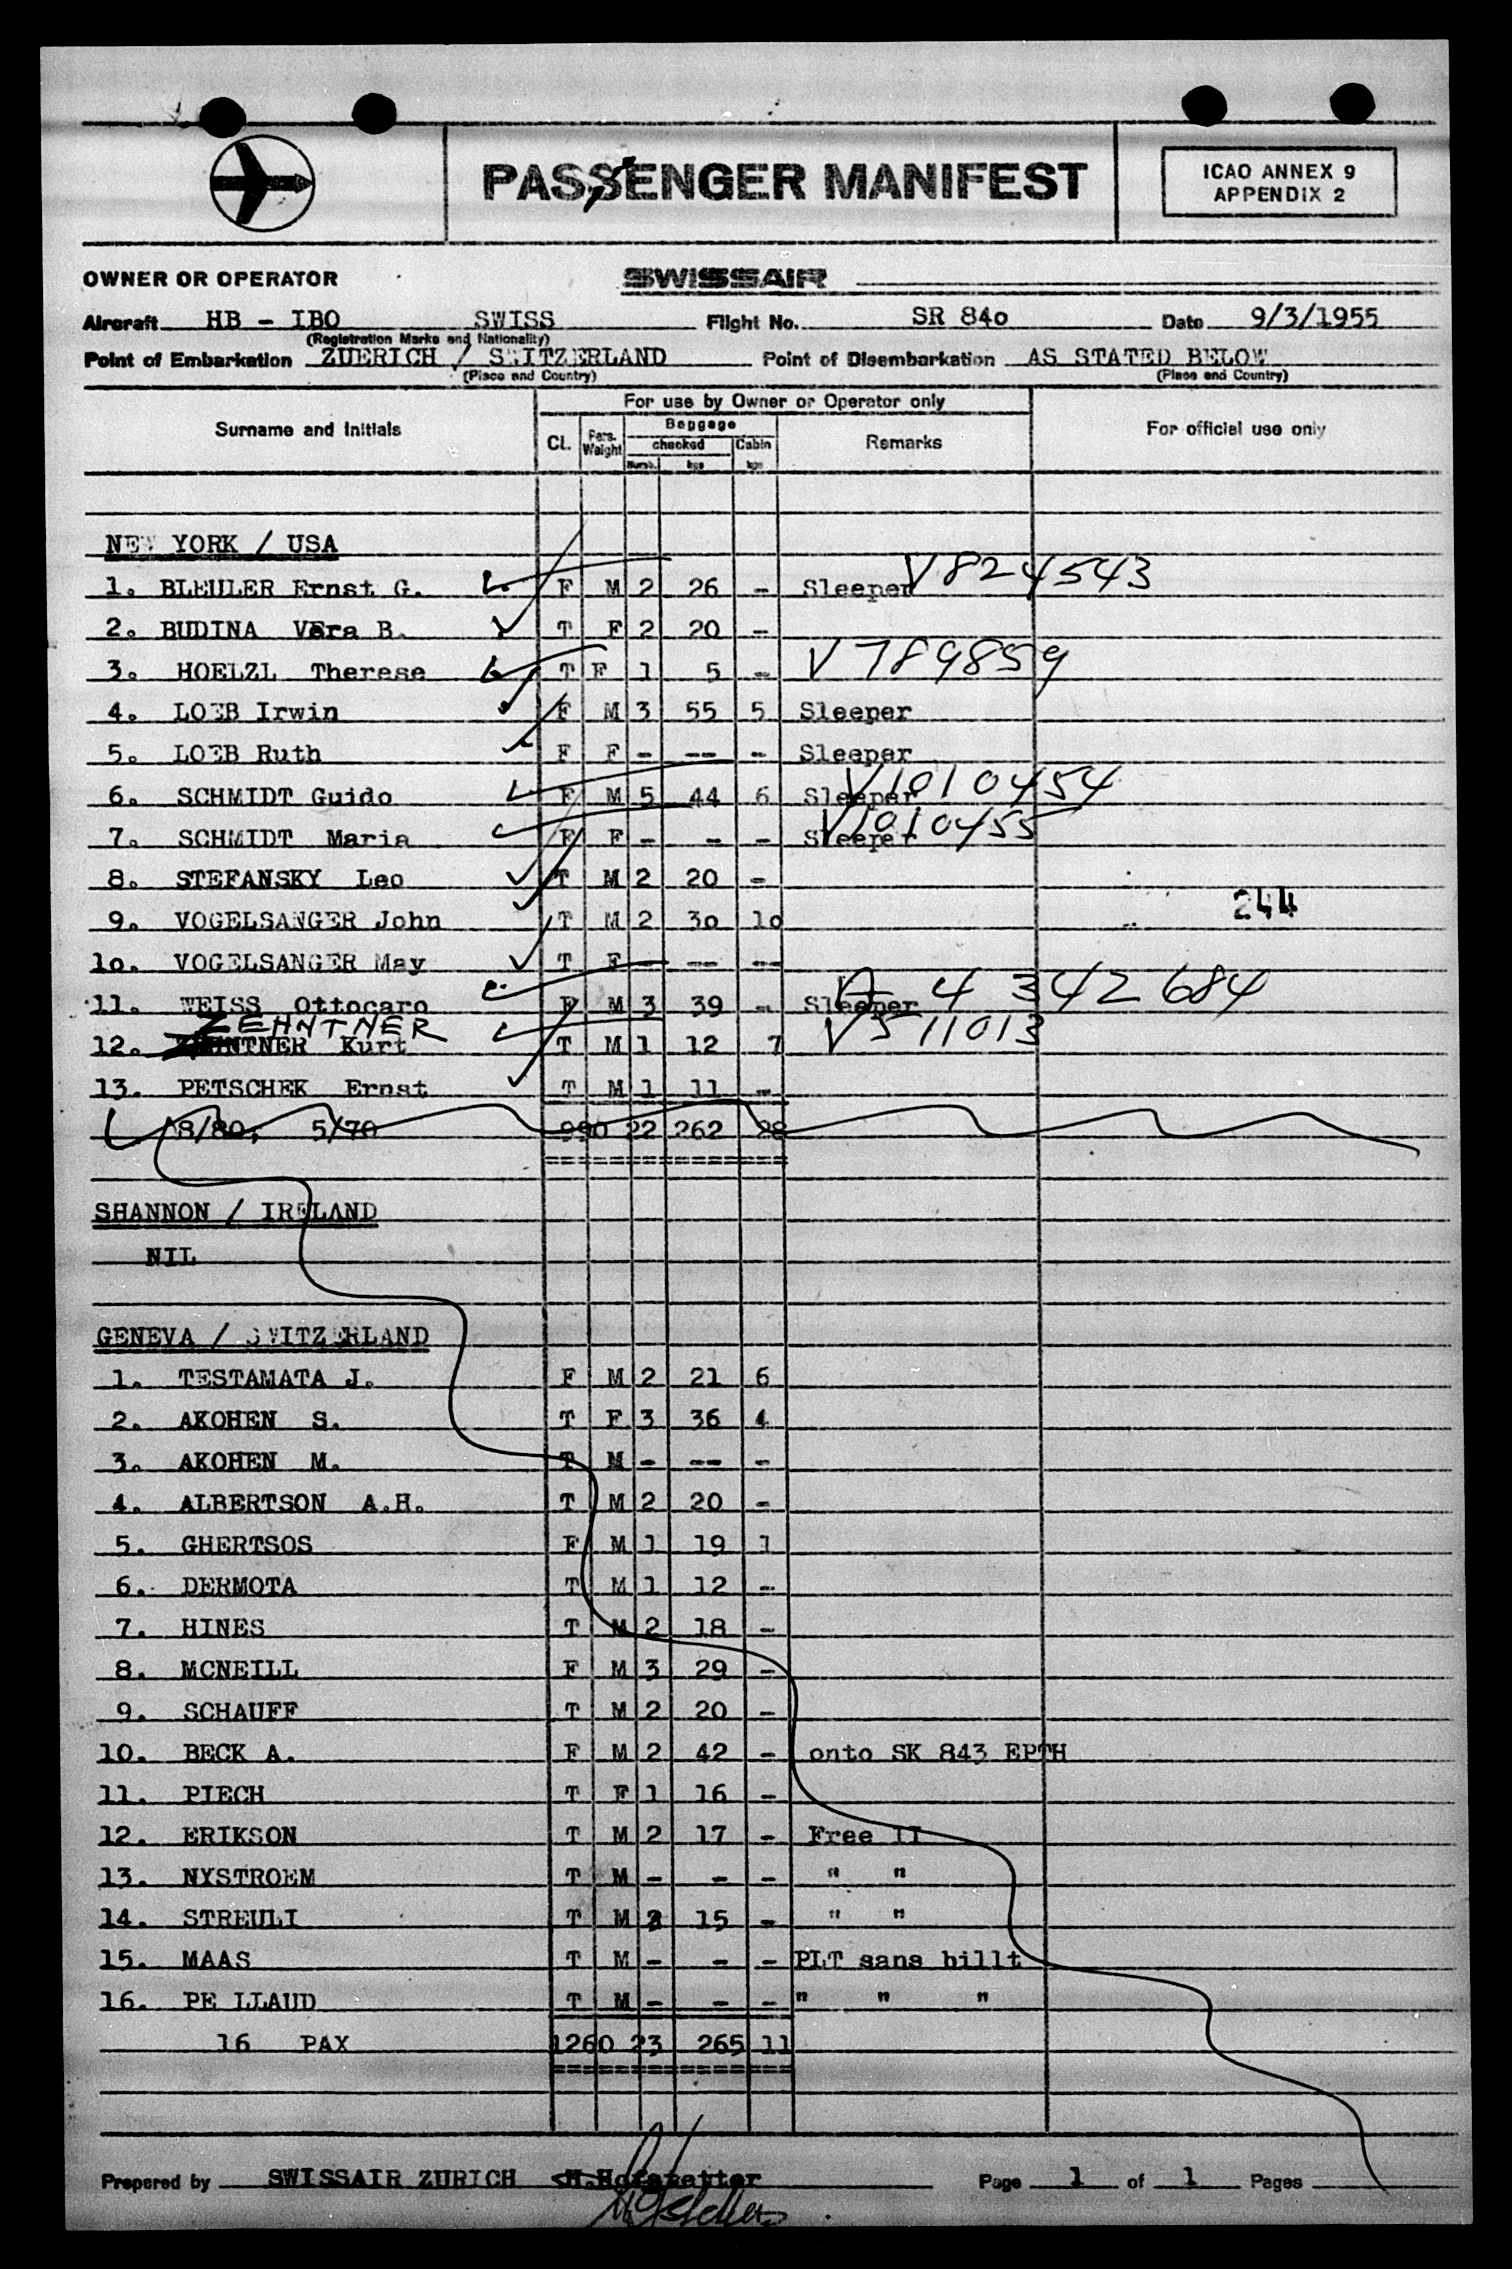 PASSENGER MANIFEST
ICAO ANNEX 9
APPENDIX 2
OWNER OR OPERATOR SWISSAIR
Aircraft HB - IBO SWISS Flight No. SR 84o Date 9/3/1955
(Registration Marks and Nationality)
Point of Embarkation ZUERICH / SWITZERLAND Point of Disembarkation AS STATED BELOW
(Place and Country) (Place and Country)
For use by Owner or Operator only
Surname and Initials Cl. Pers. Weight Baggage checked Cabin Remarks For official use only
Numb. kgs kgs
NEW YORK / USA
1. BLEULER Ernst G. F M 2 26 - Sleeper V 824543
2. BUDINA Vera B. T F 2 20 -
3. HOELZL Therese T F 1 5 - V 789859
4. LOEB Irwin F M 3 55 5 Sleeper
5. LOEB Ruth F F - -- - Sleeper
6. SCHMIDT Guido F M 5 44 6 Sleeper V1010454
7. SCHMIDT Maria F F - - - Sleeper V1010455
8. STEFANSKY Leo T M 2 20 -
9. VOGELSANGER John T M 2 3o 1o 244
1o. VOGELSANGER May T F -- -- --
11. WEISS Ottocaro F M 3 39 - Sleeper A 4 342 684
ZEHNTNER
12. ZEHNTNER Kurt T M 1 12 7 V511013
13. PETSCHEK Ernst T M 1 11 -
8/80, 5/70 990 22 262 28
==================
SHANNON / IRELAND
NIL
GENEVA / SWITZERLAND
1. TESTAMATA J. F M 2 21 6
2. AKOHEN S. T F 3 36 4
3. AKOHEN M. T M - -- -
4. ALBERTSON A.H. T M 2 20 -
5. GHERTSOS F M 1 19 1
6. DERMOTA T M 1 12 -
7. HINES T M 2 18 -
8. MCNEILL F M 3 29 -
9. SCHAUFF T M 2 20 -
10. BECK A. F M 2 42 - onto SK 843 EPTH
11. PIECH T F 1 16 -
12. ERIKSON T M 2 17 - Free II
13. NYSTROEM T M - - - " "
14. STREULI T M 2 15 - " "
15. MAAS T M - - - PLT sans billt
16. PE LLAUD T M - - - " " "
16 PAX 1260 23 265 11
==================
Prepared by SWISSAIR ZURICH H.Hofstetter Page 1 of 1 Pages